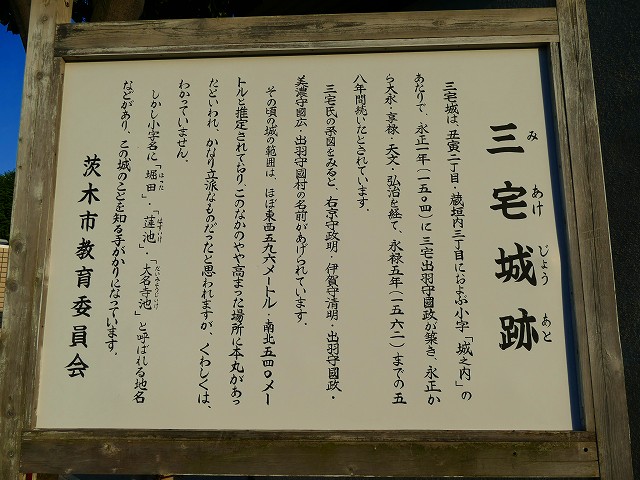 三宅城跡
みやけじょうあと
三宅城は、丑寅二丁目・蔵垣内三丁目におよぶ小字「城之内」の
あたりで、永正一年(一五〇四)に三宅出羽守國政が築き、永正か
ら大永・享禄・天文・弘治を経て、永禄五年(一五六二)までの五
八年間続いたとされています。
三宅氏の系図をみると、右京守政明・伊賀守清明・出羽守國政・
美濃守國広・出羽守國村の名前があげられています。
その頃の城の範囲は、ほぼ東西五九六メートル・南北五四〇メー
トルと推定されており、このなかのやや高まった場所に本丸があっ
たといわれ、かなり立派なものだったと思われますが、くわしくは、
わかっていません。
しかし小字名に「堀田」・「蓮池」・「大名寺池」と呼ばれる地名
ほった はすいけ だいみょうじいけ
などがあり、この城のことを知る手がかりになっています。
茨木市教育委員会